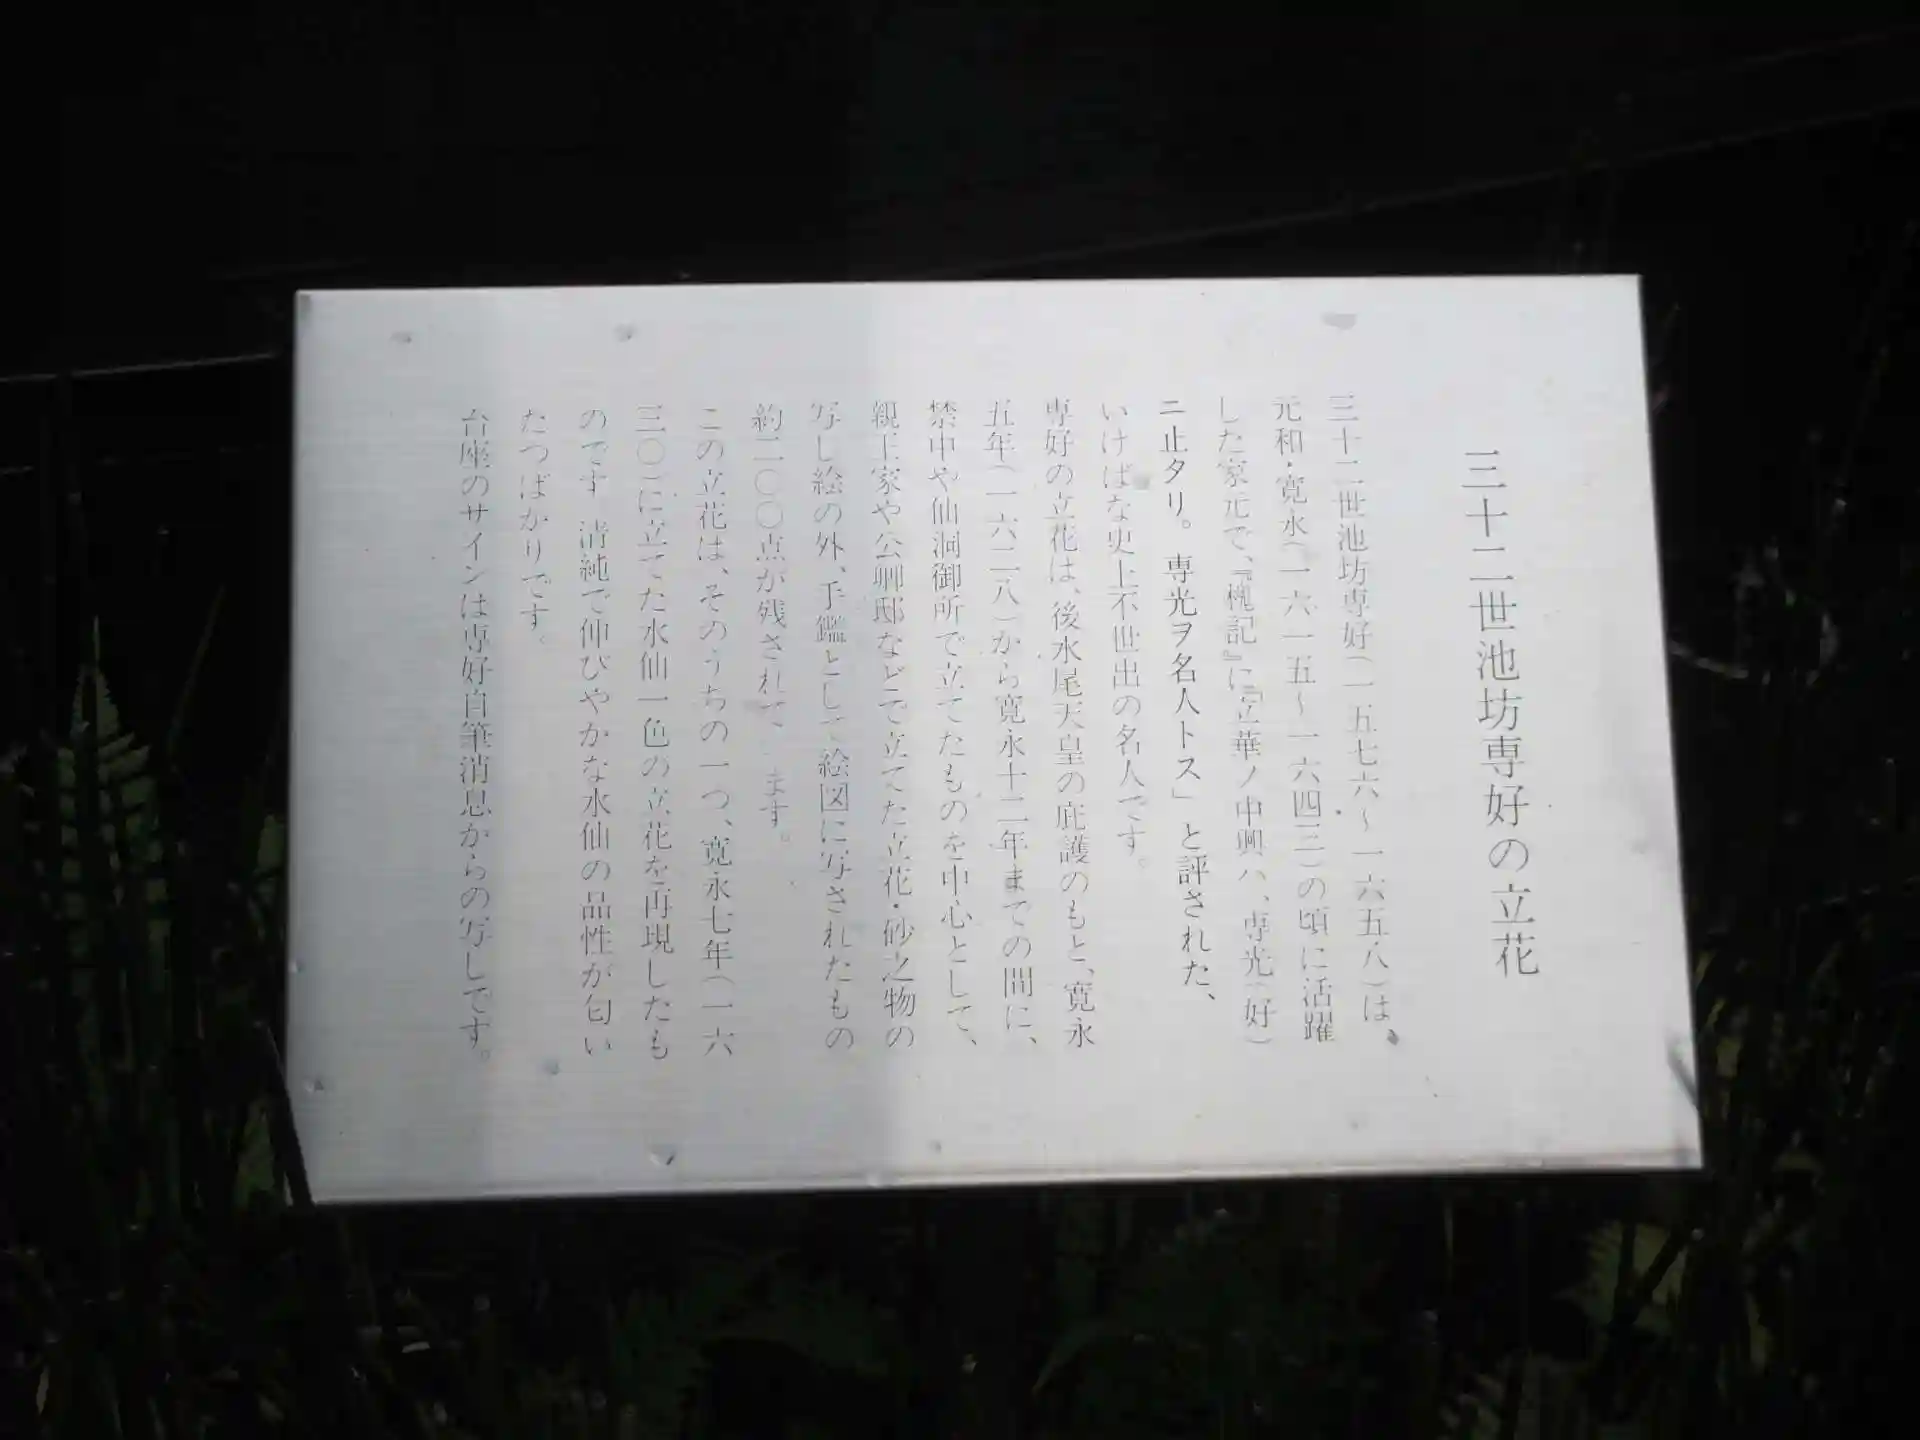 三十二世池坊専好の立花
三十二世池坊専好(一五七六〜一六五八)は、
元和・寛永(一六一五〜一六四三)の頃に活躍
した家元で、『槐記』に『立華ノ中興ハ、専光(好)
ニ止タリ。専光ヲ名人トス」と評された、
いけばな史上不世出の名人です。
専好の立花は、後水尾天皇の庇護のもと、寛永
五年(一六二八)から寛永十二年までの間に、
禁中や仙洞御所で立てたものを中心として、
親王家や公卿邸などで立てた立花・砂之物の
写し絵の外、手鑑として絵図に写されたもの
約二〇〇点が残されて ます。
この立花は、そのうちの一つ、寛永七年(一六
三〇)に立てた水仙一色の立花を再現したも
のです 清純で伸びやかな水仙の品性が匂い
たつばかりです。
台座のサインは専好自筆消息からの写しです。